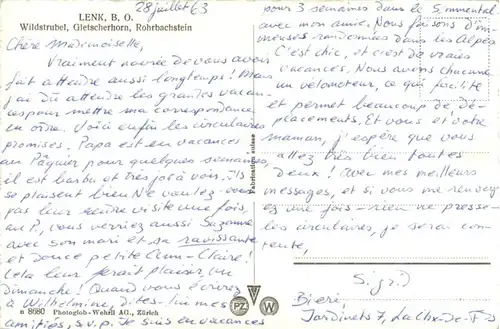 LENK, B. O.
Wildstrubel, Gletscherhorn, Rohrbachstein
28 juillet 63
Chère Mademoiselle,
Vraiment navrée de vous avoir
fait attendre aussi longtemps! Mais
j'ai dû attendre les grandes vacan-
ces pour mettre ma correspondance
en ordre. Voici enfin les circulaires
promises. Papa est en vacances
au Pâquier pour quelques semaines,
il est barbu et très joli à voir. Ils
se plaisent bien. Ne voulez-vous
pas leur rendre visite une fois,
au P., vous verriez aussi Suzanne
avec son mari et sa ravissante
et douce petite Ann-Claire!
Cela leur ferait plaisir, un
dimanche! Quand vous écrirez
à Wilhelmine, dites-lui mes
amitiés, s.v.p. Je suis en vacances
n 8680 Photoglob-Wehrli AG., Zürich
Fabrication suisse
PZ
W
pour 3 semaines dans le Simmental
avec mon amie. Nous faisons d'im-
menses randonnées dans les Alpes
C'est chic, et c'est de vraies
vacances. Nous avons chacune
un vélomoteur, ce qui facilite
et permet beaucoup de dé-
placements. Et vous et votre
maman, j'espère que vous
allez très bien toutes
deux! Avec mes meilleurs
messages, et si vous me renvoy-
ez une fois - rien ne presse -
les circulaires, je serai con-
tente,
Sigrid
Bieri,
Jardinets 7, La Chx-de-Fds